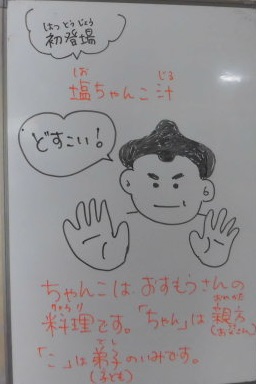 はつとうじょう
初登場
しお　じる
塩ちゃんこ汁
どすこい！
ちゃんこは、おすもうさんの
りょうり　おやかた
料理です。「ちゃん」は親方
(お父さん)
でし
「こ」は弟子のいみです。
(子ども)